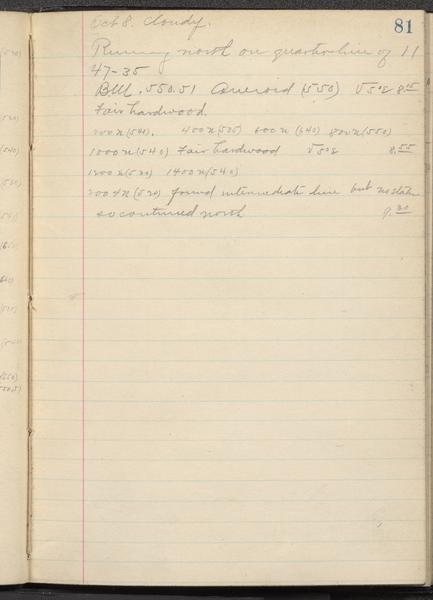 81
Oct 8. Cloudy.
Running north on quarter line of 11
47-35
BM. 550.51 Aneroid (550) V 5°E 8.15
Fair hardwood.
200 N (540). 400 N (535) 600 N (540) 800 N (550)
1000 N (540) Fair hardwood V 5°E 8.55
1200 N (530) 1400 N (540)
2004 N (520) found intermediate line but no stake
so continued north 9.20
(540)
(550)